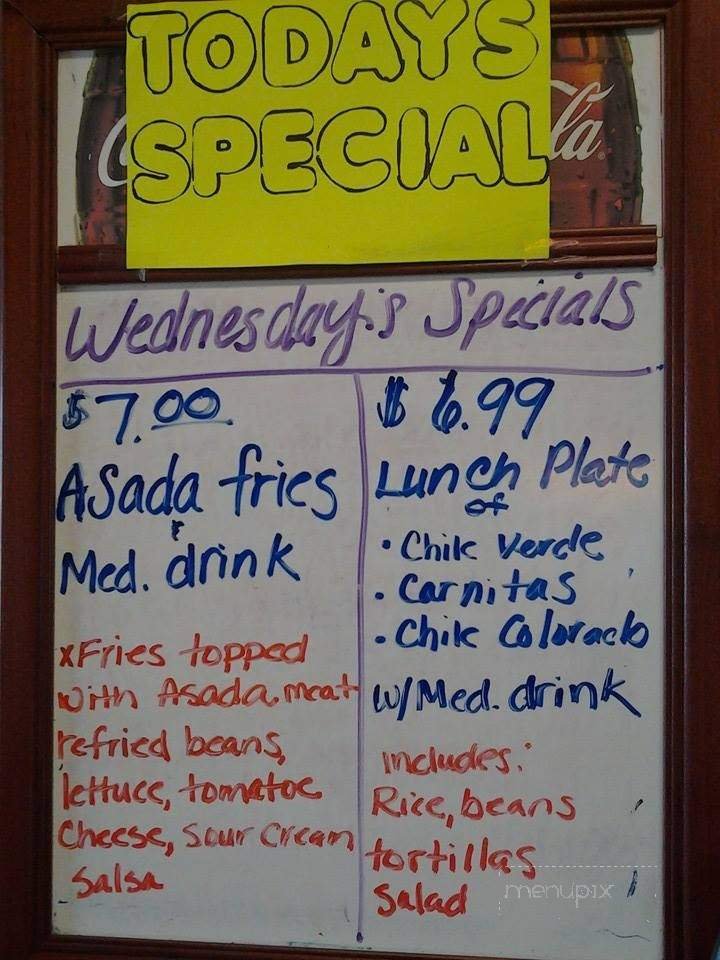 TODAYS
SPECIAL
la
Wednesday's Specials
$7.00
Asada fries
&
Med. drink
xFries topped
with Asada meat
refried beans,
lettuce, tomatoe
Cheese, Sour Cream
Salsa
$6.99
Lunch Plate
of
• Chile Verde
• Carnitas
• Chile Colorado
w/Med. drink
includes:
Rice, beans
tortillas
salad
menupix